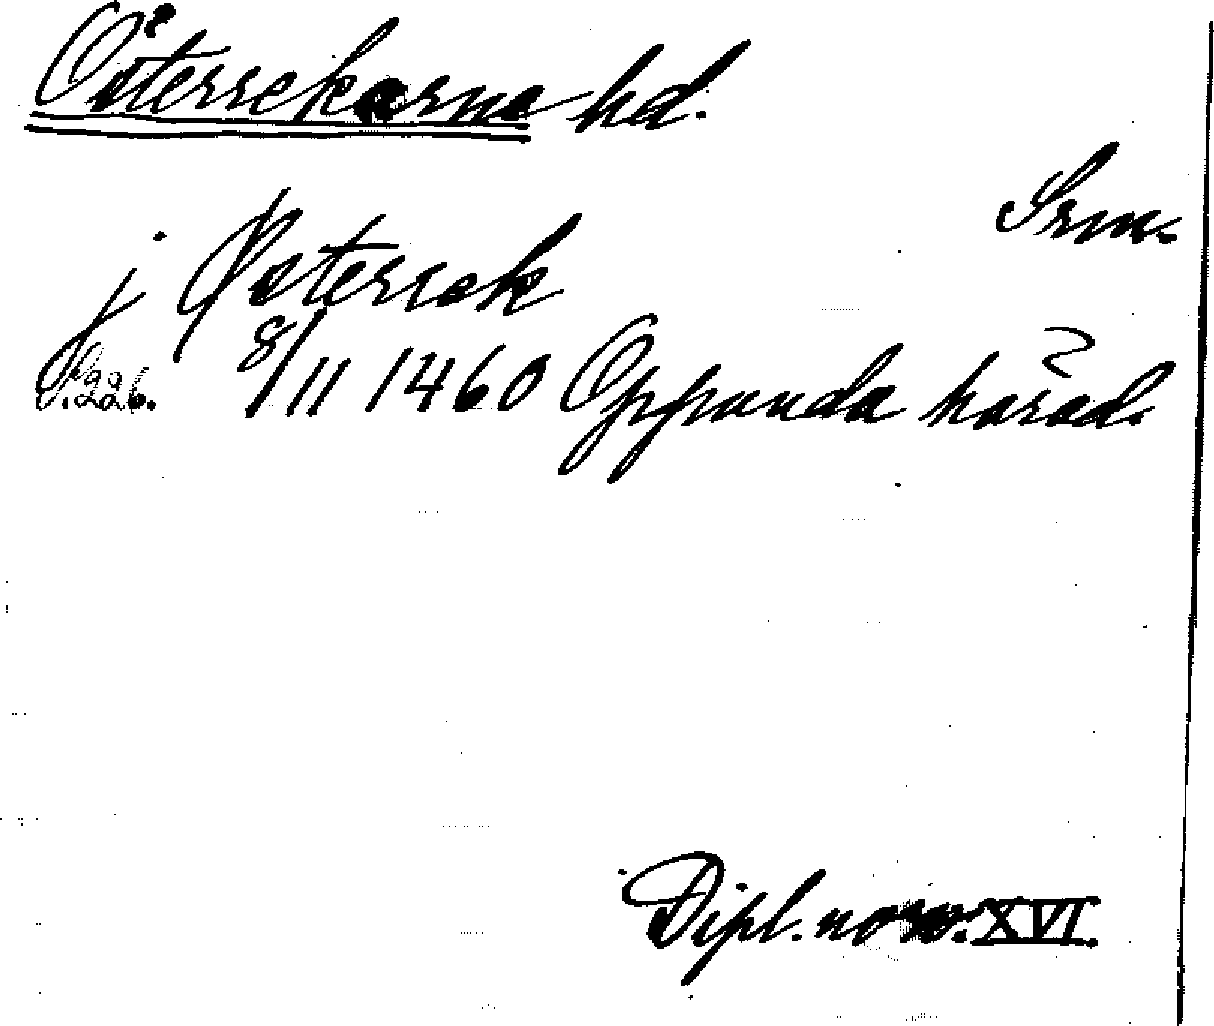 Österrekarna hd.
Srm.
j Østerrek
8/11 1460 Oppunda härad.
s. 226.
Dipl. norv. XVI.